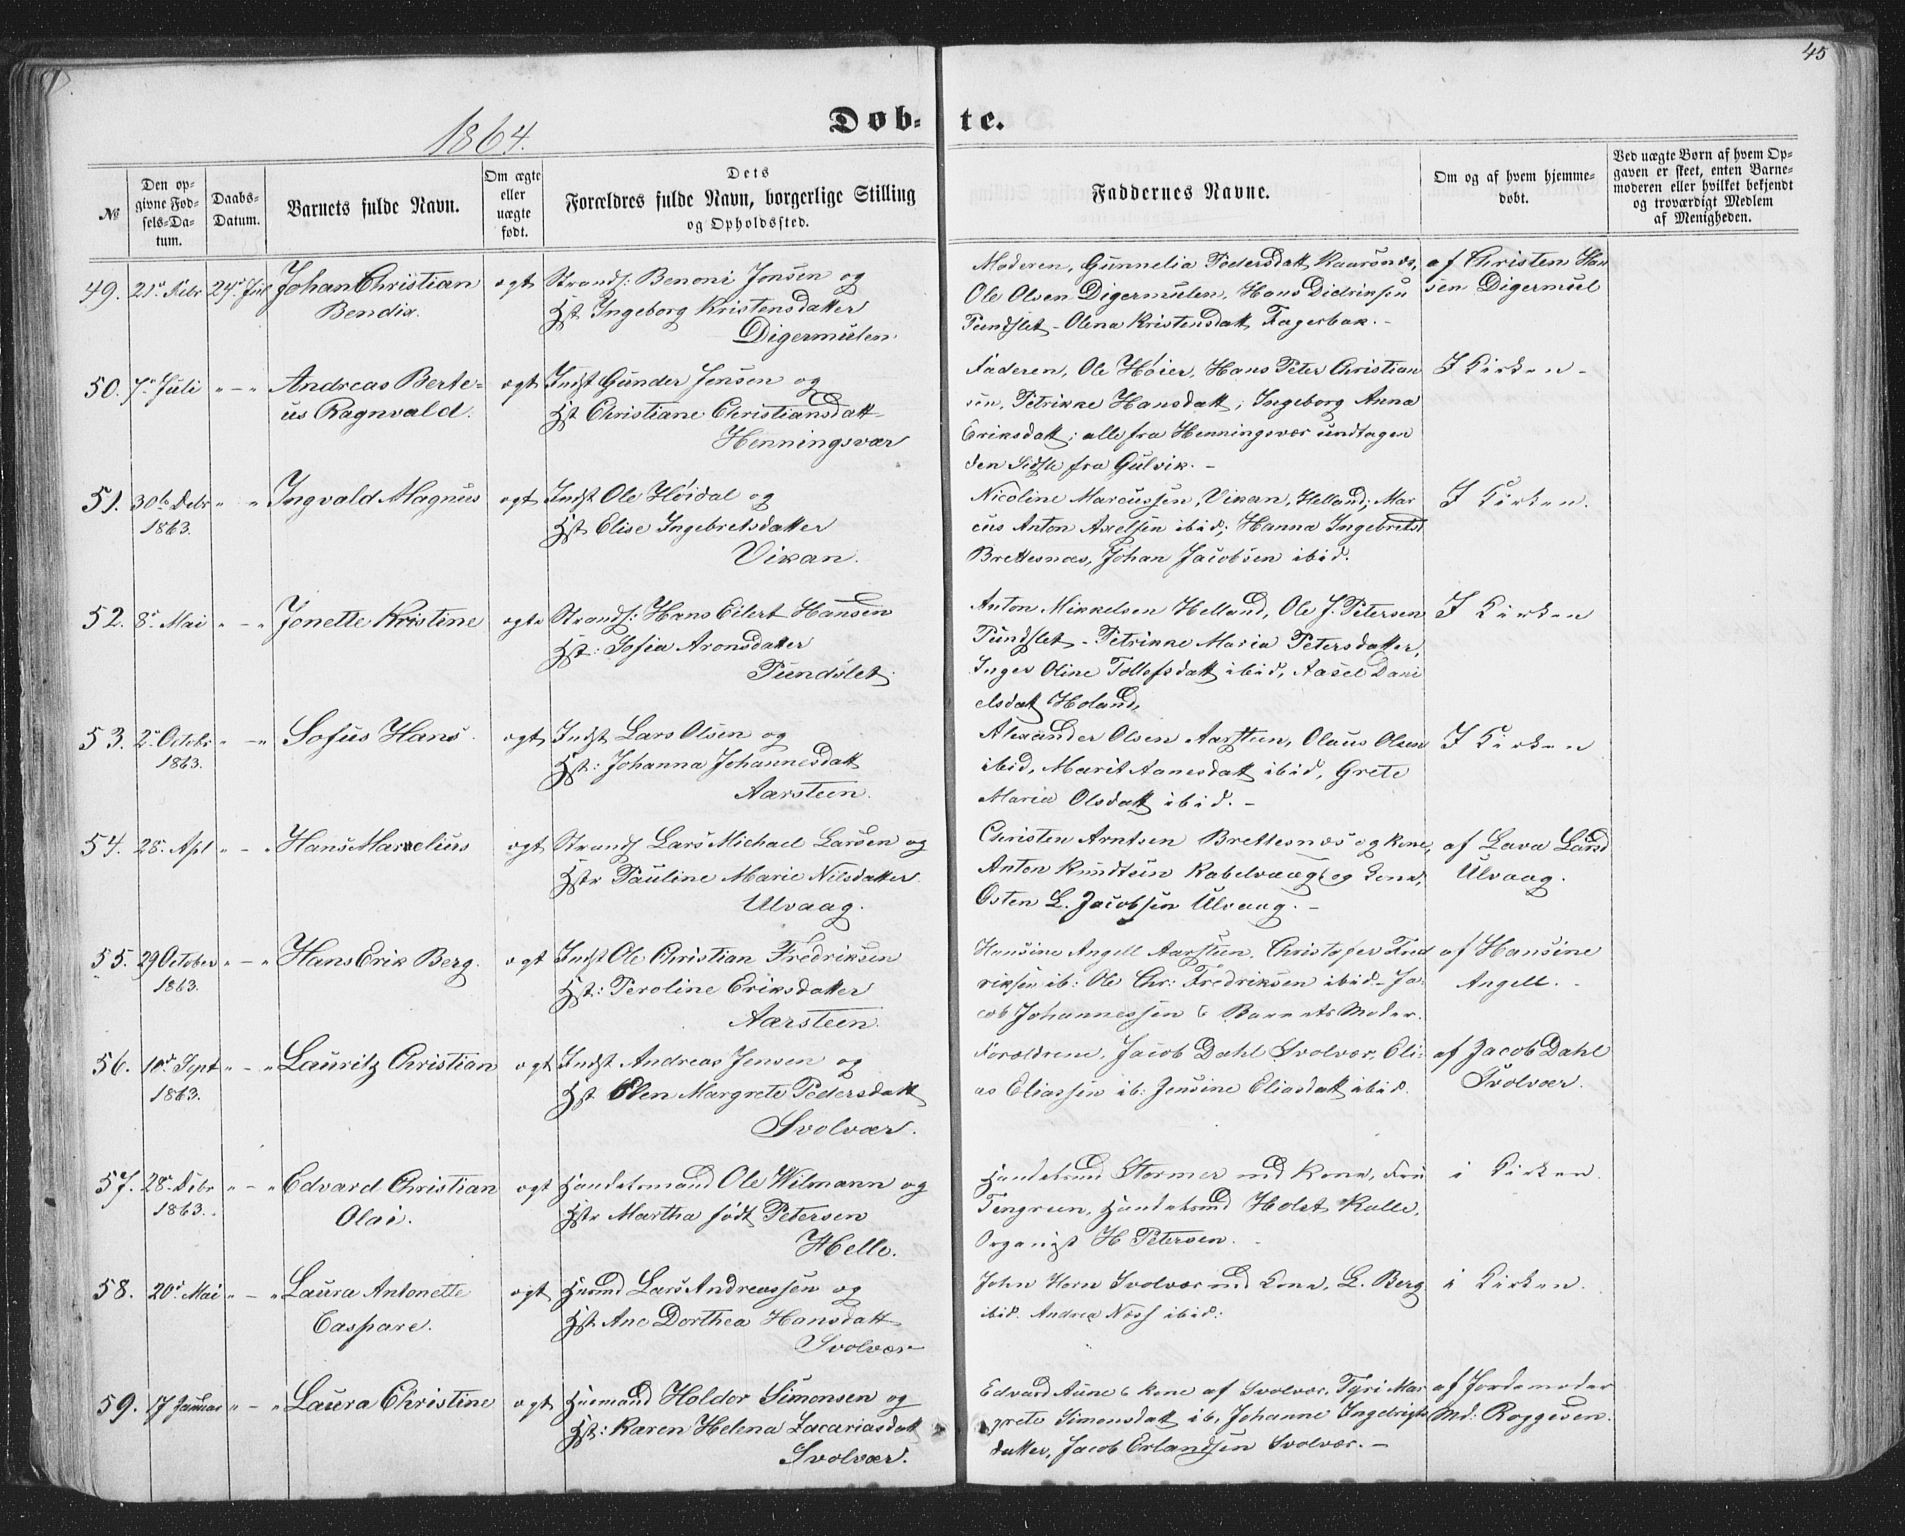 45
1864.
Døb- te.
№
Den opgivne Fødsels-Datum.
Daabs-Datum.
Barnets fulde Navn.
Om ægte eller uægte født.
Dets Forældres fulde Navn, borgerlige Stilling og Opholdssted.
Faddernes Navne.
Om og af hvem hjemmedøbt.
Ved uægte Børn af hvem Opgaven er skeet, enten Barnemoderen eller hvilket bekjendt og troværdigt Medlem af Menigheden.
49. 21de Febr 24de Juli Johan Christian ægt Strands: Benoni Jonsen og
Bendix. Hst Ingeborg Kristensdatter
Digermulen.
Moderen, Gunnelia Pedersdatt
Ole Olsen Digermulen, Hans Didriksen
Pundslet - Olena Kristensdatt Fagerbak. -
af Christen Han
sen Digermul
50. 7de Juli " - " Andreas Berte- ægt Indst Gunder Jensen og
us Ragnvald. Hst Christiane Christiansdatt
Henningsvær
Faderen, Ole Høier, Hans Peter Christian
sen, Petrikke Hansdatt, Ingeborg Anna
Eriksdatt; alle fra Henningsvær undtagen
den Sidste fra Gulvik. -
I Kirken -
51. 30te Debr " " Ingvald Magnus ægt Indst Ole Høidal og
1863. Hst Elise Ingebretsdatter
Vikan.
Nicoline Marcussen, Vikan, Helland; Mar
cus Anton Axelsen ibid; Hanna Ingebretsd
Brettesnæs, Johan Jacobsen ibid.
I Kirken.
52. 8de Mai " - " Jonette Kristine ægte Strands: Hans Eilert Hansen
Hst: Sofia Aronsdatter
Pundslet.
Anton Mikkelsen Helland, Ole J. Petersen
Pundslet - Petrikke Maria Petersdatter,
Inger Oline Tollefsdatt ibid, Aasel Dani
elsdatt Holand,
I Kirken
53. 2de Octobr " - " Sofus Hans. ægt Indst Lars Olsen og
1863. Hst: Johanna Johannesdatt
Aarsteen.
Alexander Olsen Aarsteen, Olaus Olsen
ibid, Marit Aanesdatt ibid, Grete
Maria Olsdatt ibid. -
I Kirken
54. 28. Apl " - " Hans Marselius ægt Strands Lars Michael Larsen og
Hstr Pauline Marie Nilsdatter.
Ulvaag.
Christen Arntsen Brettesnæs og Kone,
Anton Knudtsen Kabelvaag og Kone,
Osten L. Jacobsen Ulvaag. -
af Lava Larsd
Ulvaag.
55. 29 October " - " Hans Erik Berg. ægt Indst Ole Christian Fredriksen
1863. Hst: Peroline Eriksdatter
Aarsteen.
Hansine Angell Aarsteen, Christofer Fred
riksen ib: Ole Chr: Fredriksen ibid - Ja-
cob Johannessen & Barnets Moder.
af Hansine
Angell. -
56. 10de Sept " - " Lauritz Christian ægt Indst Andreas Jensen og
1863. Hst Elen Margrete Pedersdatt
Svolvær.
Forældrene, Jacob Dahl Svolvær, Eli-
as Eliassen ib: Jensine Eliasdatt ibid.
af Jacob Dahl
Svolvær.
57. 28de Debr " - " Edvard Christian ægt Handelsmand Ole Wilmann og
1863. Olai. Hstr Martha født Petersen
Helle.
Handelsmd Stormer md Kone, Fru
Tengreen, Handelsmd Holst Kalle,
Organist H Petersen. -
i Kirken.
58. 20de Mai " - " Laura Antonette ægt Husmd Lars Andreassen og
Caspare. Hst. Ane Dorthea Hansdatt
Svolvær
John Horn Svolvær md Kone, L. Berg
ibid. Andrea Næss ibid:
i Kirken.
59. 17 Januar " - " Laura Christine ægt Husmand Holder Simonsen og
Hst: Karen Helena Zacariasdatt
Svolvær.
Edvard Aune & Kone af Svolvær, Tyri Mar
grete Simonsdatt ib, Johanne Ingebrigts
datter, Jacob Erlandsen Svolvær. -
af Jordemoder
Md: Roggesen.